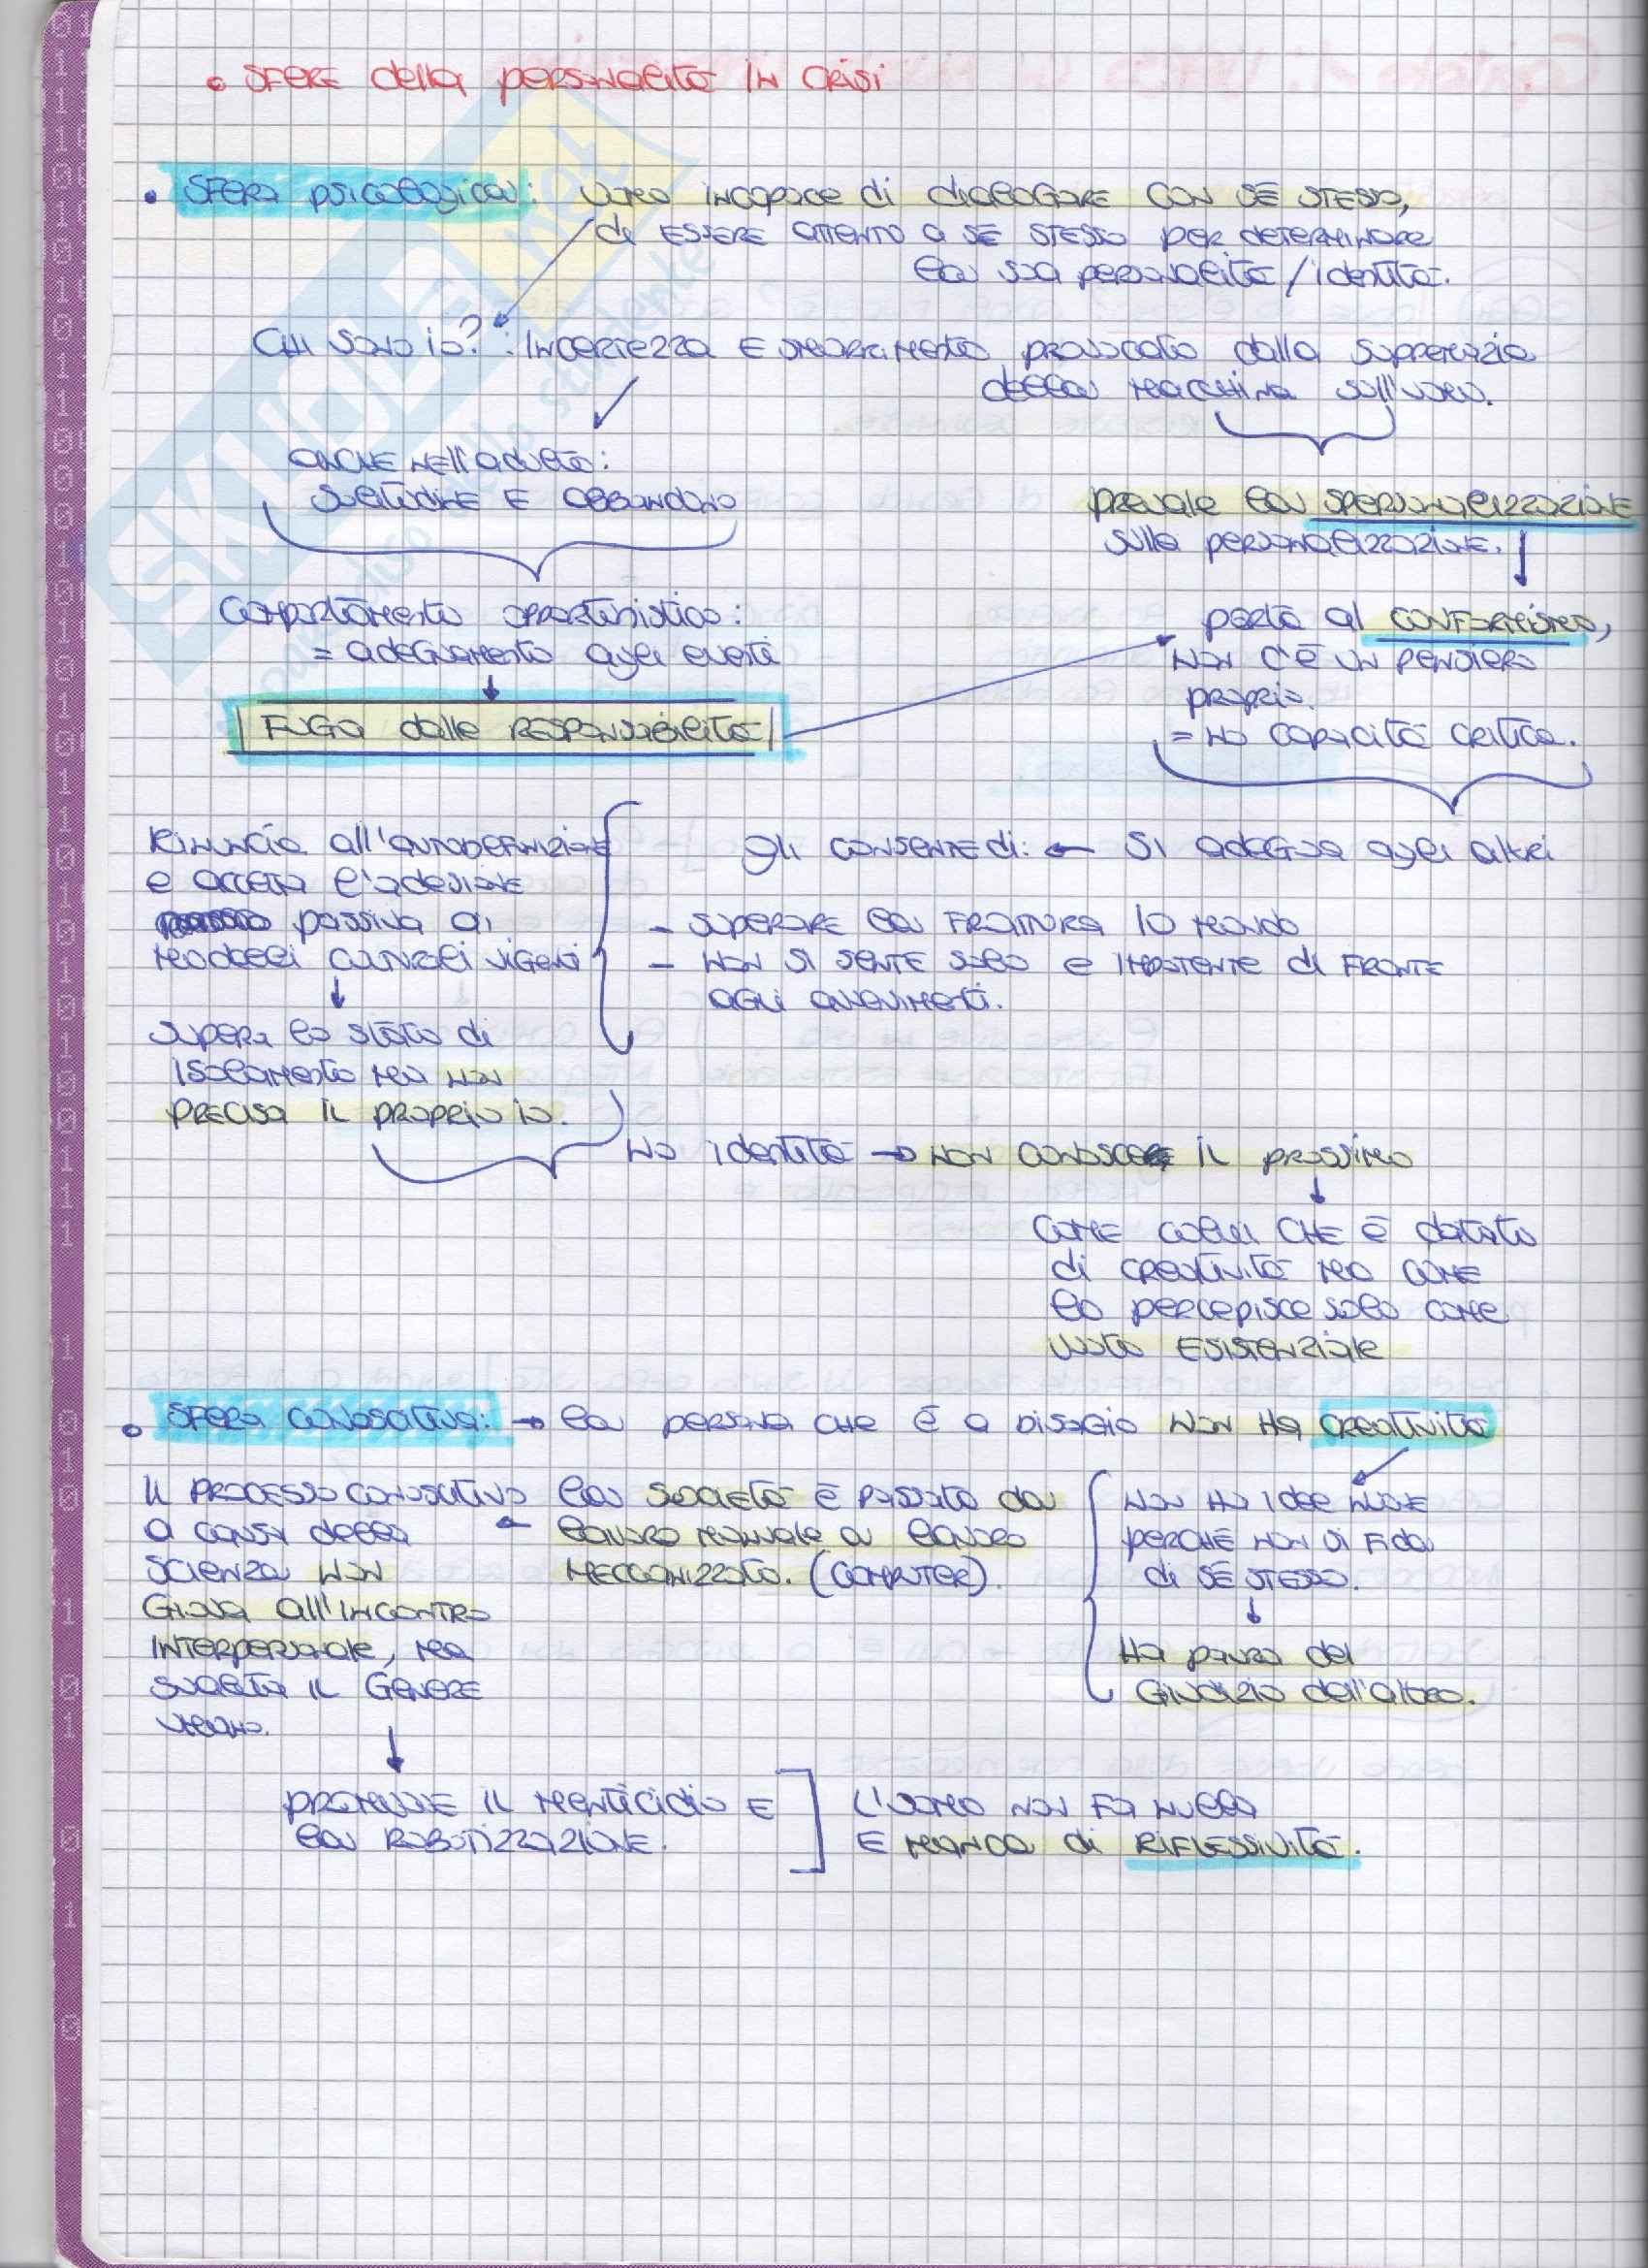 • SFERE della personalità IN CRISI
• SFERA psicologica: uomo incapace di dialogare con sé stesso,
di essere attento a sé stesso per determinare
la sua personalità / identità.
Chi sono io? : Incertezza e smarrimento provocato dalla supremazia
della macchina sull'uomo.
anche nell'adulto:
solitudine e abbandono
prevale la spersonalizzazione
sulla personalizzazione.
Comportamento opportunistico:
= adeguamento agli eventi
porta al conformismo,
non c'è un pensiero
proprio.
= no capacità critica.
FUGA dalle RESPONSABILITÀ
Rinuncia all'autodefinizione
e accetta l'adesione
passiva ai
modelli culturali vigenti
gli consente di: ← Si adegua agli altri
- superare la frattura io mondo
- non si sente solo e impotente di fronte
agli avvenimenti.
supera lo stato di
isolamento ma non
precisa il proprio io.
no identità → non conosce il prossimo
come colui che è dotato
di creatività ma come
lo percepisce solo come
vuoto esistenziale
• SFERA conoscitiva: → la persona che è a disagio non ha creatività
Il processo conoscitivo
a causa della
scienza non
giova all'incontro
interpersonale, ma
svuota il genere
umano.
← la società è passata da
lavoro manuale a lavoro
meccanizzato. (computer).
non ha idee nuove
perché non si fida
di sé stesso.
Ha paura del
giudizio dell'altro.
promuove il menticidio e
la robotizzazione.
L'uomo non fa nulla
e manca di riflessività.
SKUOLA.net